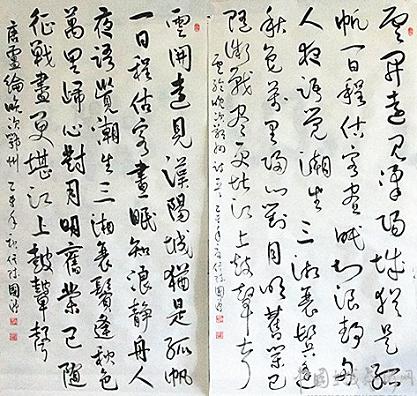 雲開遠見漢陽城猶是孤
帆一日程估客晝眠知浪靜舟
人夜語覺潮生三湘衰鬢逢
秋色萬里歸心對月明舊業已
隨征戰盡更堪江上鼓鼙聲
盧綸晚次鄂州詩
雲開遠見漢陽城猶是孤帆
一日程估客晝眠知浪靜舟人
夜語覺潮生三湘衰鬢逢秋色
萬里歸心對月明舊業已隨
征戰盡更堪江上鼓鼙聲
唐盧綸晚次鄂州